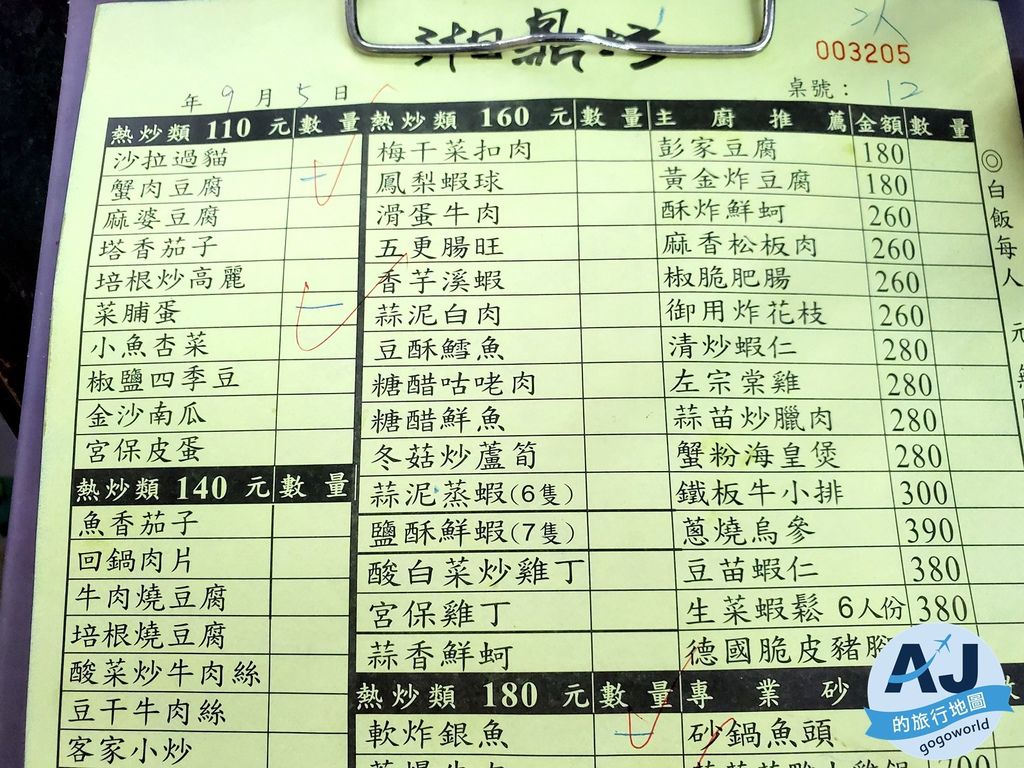 湘鼎坊
003205
年 9 月 5 日
桌號： 12
熱炒類 110 元 數量
沙拉過貓
蟹肉豆腐 一
麻婆豆腐
塔香茄子
培根炒高麗
菜脯蛋 一
小魚杏菜
椒鹽四季豆
金沙南瓜
宮保皮蛋
熱炒類 140 元 數量
魚香茄子
回鍋肉片
牛肉燒豆腐
培根燒豆腐
酸菜炒牛肉絲
豆干牛肉絲
客家小炒
熱炒類 160 元 數量
梅干菜扣肉
鳳梨蝦球
滑蛋牛肉
五更腸旺
香芋溪蝦
蒜泥白肉
豆酥鱈魚
糖醋咕咾肉
糖醋鮮魚
冬菇炒蘆筍
蒜泥蒸蝦(6隻)
鹽酥鮮蝦(7隻)
酸白菜炒雞丁
宮保雞丁
蒜香鮮蚵
熱炒類 180 元 數量
軟炸銀魚 一
主廚推薦 金額 數量
彭家豆腐 180
黃金炸豆腐 180
酥炸鮮蚵 260
麻香松板肉 260
椒脆肥腸 260
御用炸花枝 260
清炒蝦仁 280
左宗棠雞 280
蒜苗炒臘肉 280
蟹粉海皇煲 280
鐵板牛小排 300
蔥燒烏參 390
豆苗蝦仁 380
生菜蝦鬆 6人份 380
德國脆皮豬腳
專業砂
砂鍋魚頭
◎白飯每人 元
AJ
的旅行地圖
gogoworld